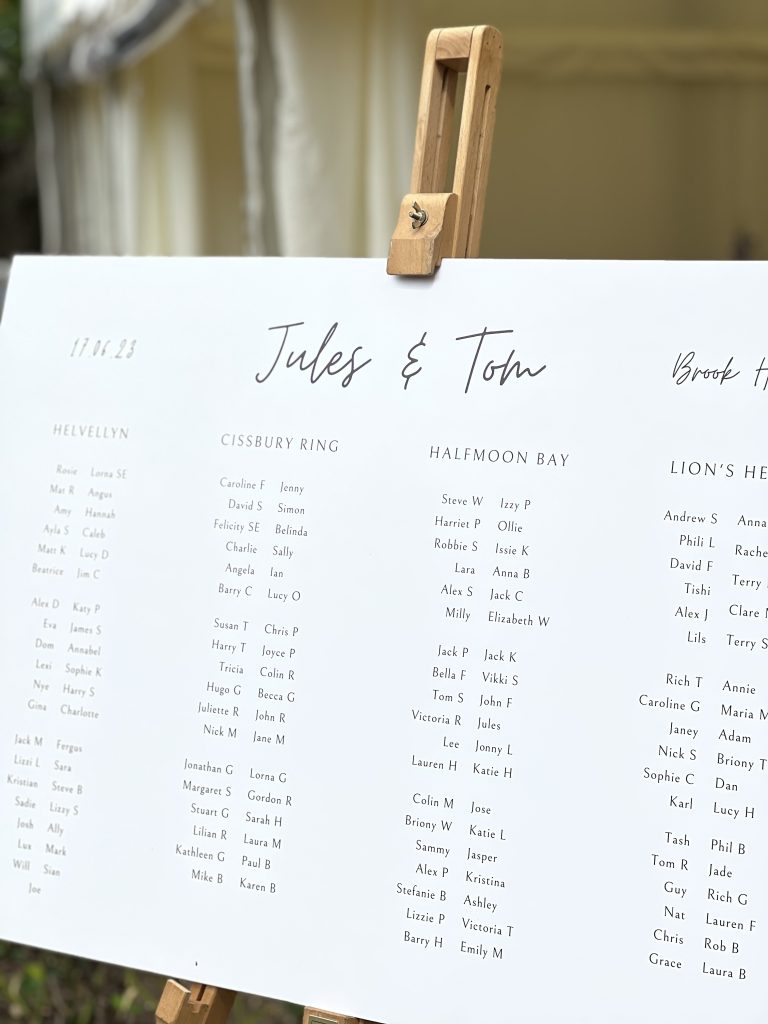 17.06.23
Jules & Tom
Brook H
HELVELLYN
Rosie Lorna SE
Mat R Angus
Amy Hannah
Ayla S Caleb
Matt K Lucy D
Beatrice Jim C
Alex D Katy P
Eva James S
Dom Annabel
Lexi Sophie K
Nye Harry S
Gina Charlotte
Jack M Fergus
Lizzi L Sara
Kristian Steve B
Sadie Lizzy S
Josh Ally
Lux Mark
Will Sian
Joe
CISSBURY RING
Caroline F Jenny
David S Simon
Felicity SE Belinda
Charlie Sally
Angela Ian
Barry C Lucy O
Susan T Chris P
Harry T Joyce P
Tricia Colin R
Hugo G Becca G
Juliette R John R
Nick M Jane M
Jonathan G Lorna G
Margaret S Gordon R
Stuart G Sarah H
Lilian R Laura M
Kathleen G Paul B
Mike B Karen B
HALFMOON BAY
Steve W Izzy P
Harriet P Ollie
Robbie S Issie K
Lara Anna B
Alex S Jack C
Milly Elizabeth W
Jack P Jack K
Bella F Vikki S
Tom S John F
Victoria R Jules
Lee Jonny L
Lauren H Katie H
Colin M Jose
Briony W Katie L
Sammy Jasper
Alex P Kristina
Stefanie B Ashley
Lizzie P Victoria T
Barry H Emily M
LION'S HE
Andrew S Anna
Phili L Rache
David F Terry
Tishi Clare
Alex J Terry S
Lils
Rich T Annie
Caroline G Maria M
Janey Adam
Nick S Briony T
Sophie C Dan
Karl Lucy H
Tash Phil B
Tom R Jade
Guy Rich G
Nat Lauren F
Chris Rob B
Grace Laura B